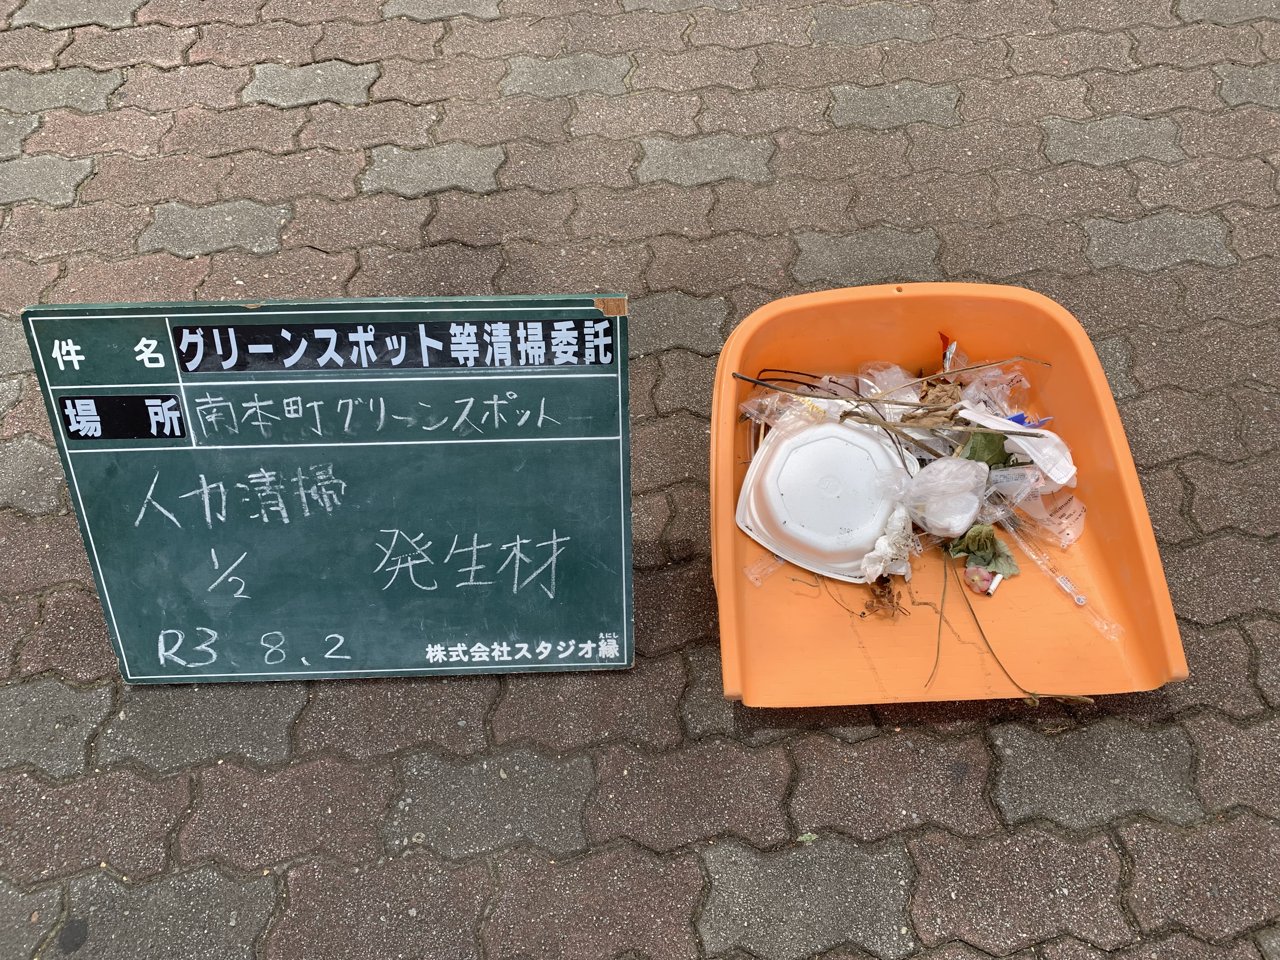 件 名 グリーンスポット等清掃委託
場 所 南本町グリーンスポット
人力清掃
1/2 発生材
R3.8.2
えにし
株式会社スタジオ縁